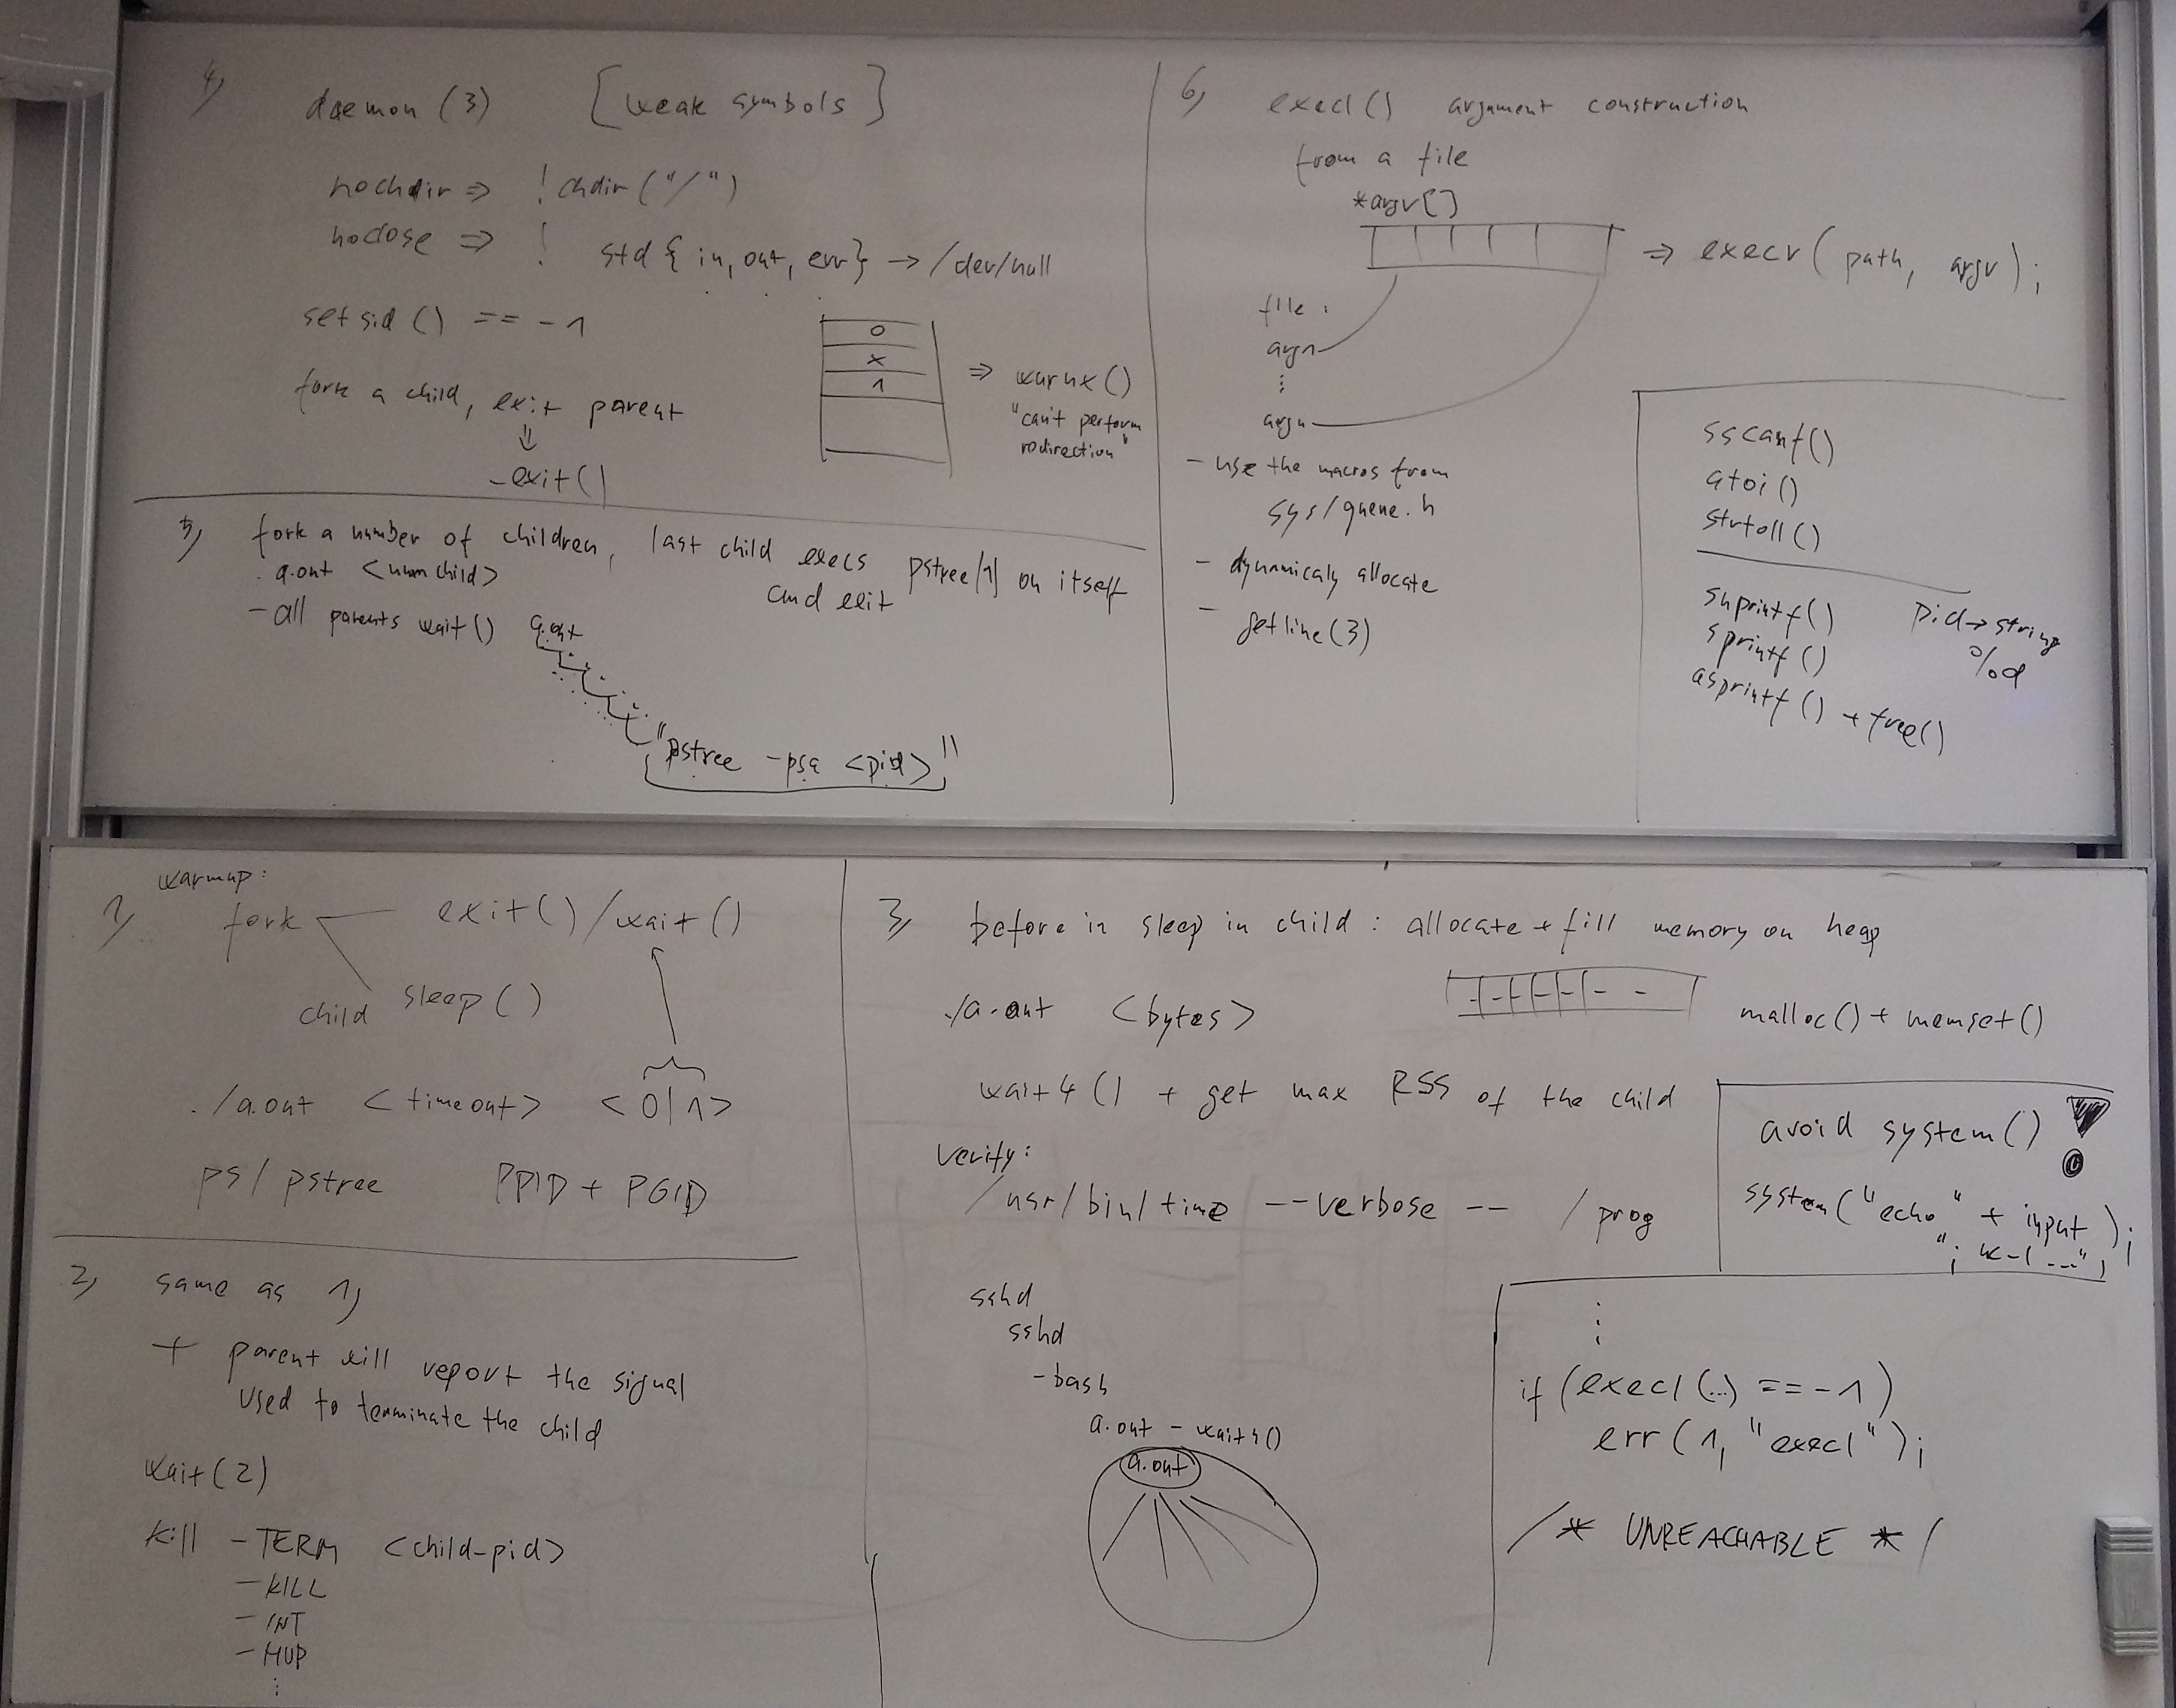 4)
daemon (3) [weak symbols]
nochdir => !chdir("/")
noclose => ! std{in, out, err} -> /dev/null
setsid() == -1
fork a child, exit parent
⇓
_exit()
0
x
1
=> warnx()
"can't perform
redirection"
5) fork a number of children, last child execs pstree(1) on itself
a.out <numchild> and exit
- all parents wait()
a.out
"pstree -psa <pid>"
6) execl() argument construction
from a file
*argv[]
=> execv(path, argv);
file:
arg1
⋮
argn
- use the macros from
sys/queue.h
- dynamicaly allocate
- getline(3)
sscanf()
atoi()
strtoll()
snprintf() pid -> string
sprintf() %d
asprintf() + free()
warmup:
1) fork exit()/wait()
child sleep()
./a.out <timeout> <0|1>
ps/pstree PPID + PGID
2) same as 1)
+ parent will report the signal
used to terminate the child
wait(2)
kill -TERM <child-pid>
-KILL
-INT
-HUP
⋮
3) before in sleep in child: allocate + fill memory on heap
./a.out <bytes> malloc() + memset()
wait4() + get max RSS of the child
verify:
/usr/bin/time --verbose -- /prog
sshd
sshd
-bash
a.out - wait4()
a.out
avoid system() !
system("echo" + input);
⋮
if (execl(...) == -1)
err(1, "execl");
/* UNREACHABLE */